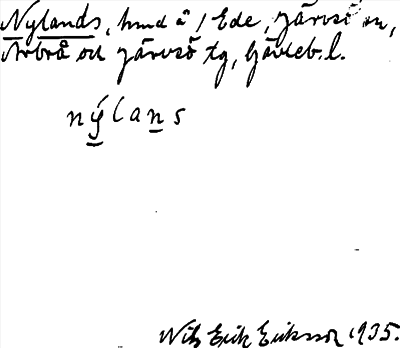 Nylands, hmd å 1 Ede, Järvsö sn,
Arbrå och Järvsö tg, Gävleb. l.
nýlans
Nils Erik Eriksson 1935.